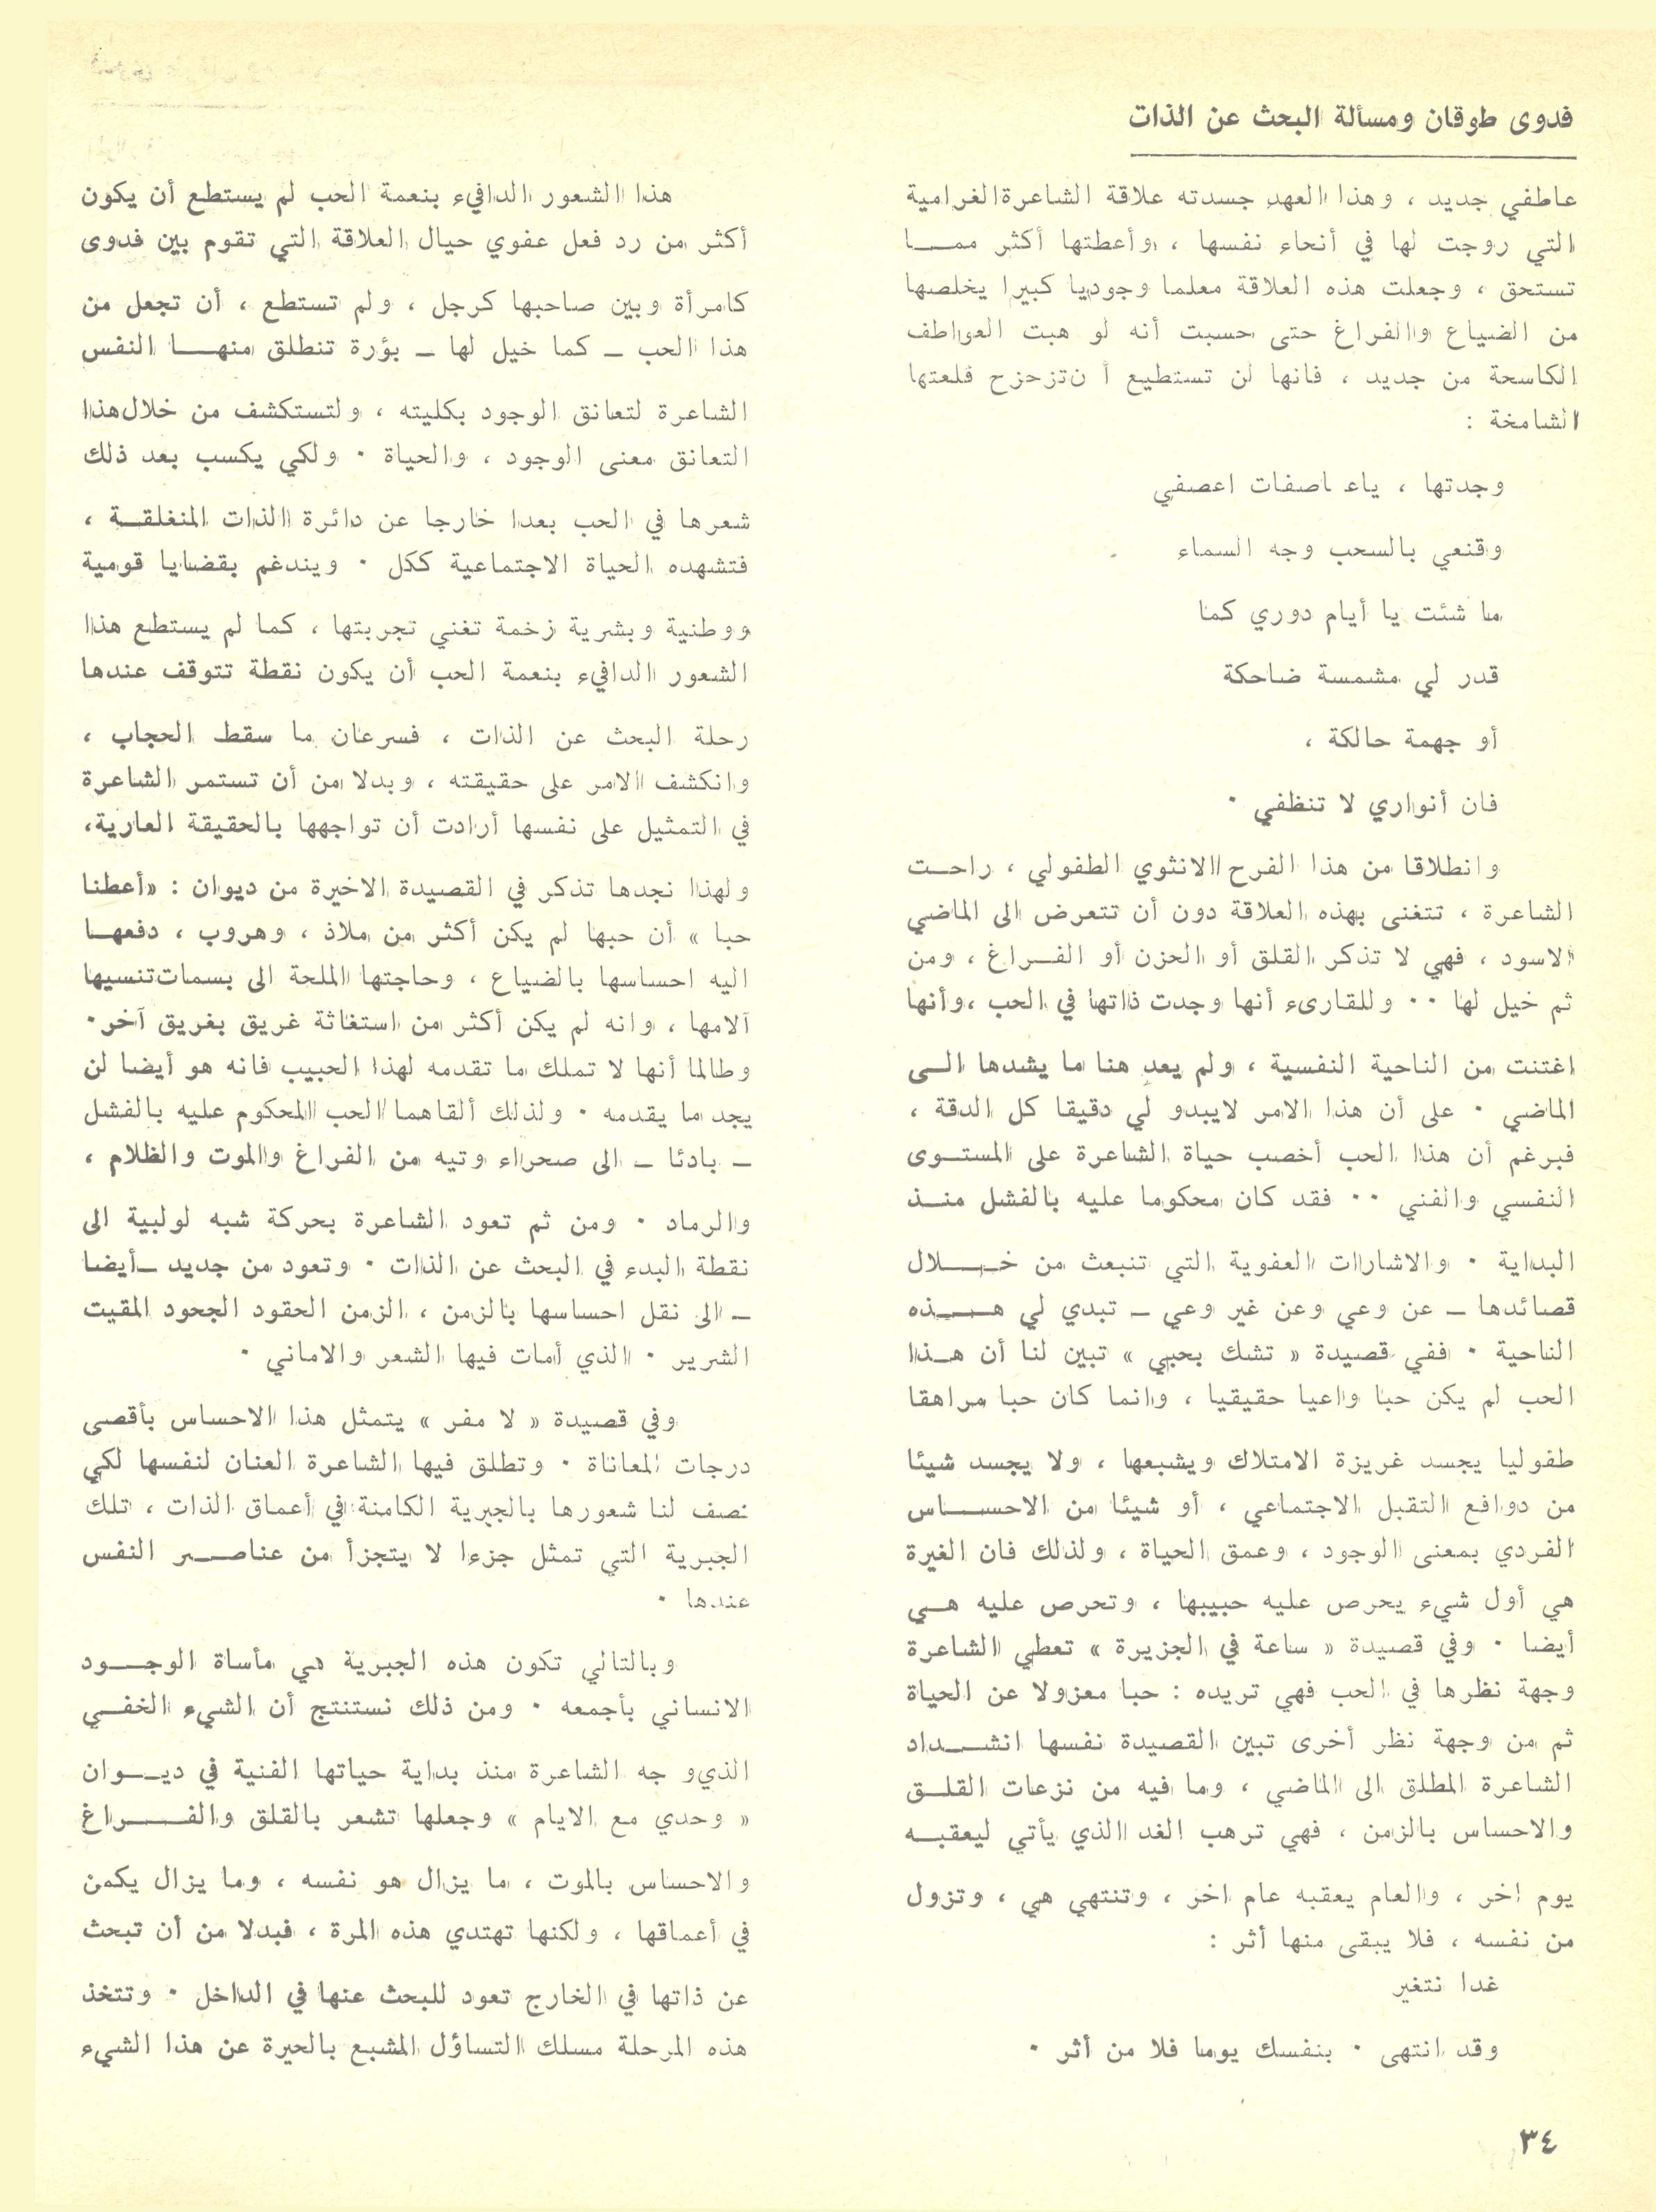 فدوى طوقان ومسألة البحث عن الذات
عاطفي جديد ، وهذا العهد جسدته علاقة الشاعرة الغرامية
التي روجت لها في أنحاء نفسها ، وأعطتها أكثر ممـــا
تستحق ، وجعلت هذه العلاقة معلما وجوديا كبيرا يخلصها
من الضياع والفراغ حتى حسبت أنه لو هبت العواطف
الكاسحة من جديد ، فانها لن تستطيع أ ن تزحزح قلعتها
الشامخة :
وجدتها ، ياعاصفات اعصفي
وقنعي بالسحب وجه السماء
ما شئت يا أيام دوري كما
قدر لي مشمسة ضاحكة
أو جهمة حالكة ،
فان أنواري لا تنظفي ٠
وانطلاقا من هذا الفرح الانثوي الطفولي ، راحـت
الشاعرة ، تتغنى بهذه العلاقة دون أن تتعرض الى الماضي
الاسود ، فهي لا تذكر القلق أو الحزن أو الفـراغ ، ومن
ثم خيل لها ٠٠ وللقارىء أنها وجدت ذاتها في الحب ،وأنها
اغتنت من الناحية النفسية ، ولم يعد هنا ما يشدها الـى
الماضي ٠ على أن هذا الامر لايبدو لي دقيقا كل الدقة ،
فبرغم أن هذا الحب أخصب حياة الشاعرة على المستـوى
النفسي والفني ٠٠ فقد كان محكوما عليه بالفشل منـذ
البداية ٠ والاشارات العفوية التي تنبعث من خـــلال
قصائدها ـ عن وعي وعن غير وعي ـ تبدي لي هـــذه
الناحية ٠ ففي قصيدة « تشك بحبي » تبين لنا أن هـذا
الحب لم يكن حبا واعيا حقيقيا ، وانما كان حبا مراهقا
طفوليا يجسد غريزة الامتلاك ويشبعها ، ولا يجسد شيئا
من دوافع التقبل الاجتماعي ، أو شيئا من الاحســاس
الفردي بمعنى الوجود ، وعمق الحياة ، ولذلك فان الغيرة
هي أول شيء يحرص عليه حبيبها ، وتحرص عليه هـي
أيضا ٠ وفي قصيدة « ساعة في الجزيرة » تعطي الشاعرة
وجهة نظرها في الحب فهي تريده : حبا معزولا عن الحياة
ثم من وجهة نظر أخرى تبين القصيدة نفسها انشــداد
الشاعرة المطلق الى الماضي ، وما فيه من نزعات القلـق
والاحساس بالزمن ، فهي ترهب الغد الذي يأتي ليعقبـه
يوم اخر ، والعام يعقبه عام اخر ، وتنتهي هي ، وتزول
من نفسه ، فلا يبقى منها أثر :
غدا نتغير
وقد انتهى ٠ بنفسك يوما فلا من أثر ٠
هذا الشعور الدافيء بنعمة الحب لم يستطع أن يكون
أكثر من رد فعل عفوي حيال العلاقة التي تقوم بين فدوى
كامرأة وبين صاحبها كرجل ، ولم تستطع ، أن تجعل من
هذا الحب ـ كما خيل لها ـ بؤرة تنطلق منهـــا النفس
الشاعرة لتعانق الوجود بكليته ، ولتستكشف من خلال هذا
التعانق معنى الوجود ، والحياة ٠ ولكي يكسب بعد ذلك
شعرها في الحب بعدا خارجا عن دائرة الذات المنغلقـة ،
فتشهده الحياة الاجتماعية ككل ٠ ويندغم بقضايا قومية
ووطنية وبشرية زخمة تغني تجربتها ، كما لم يستطع هذا
الشعور الدافيء بنعمة الحب أن يكون نقطة تتوقف عندها
رحلة البحث عن الذات ، فسرعان ما سقط الحجاب ،
وانكشف الامر على حقيقته ، وبدلا من أن تستمر الشاعرة
في التمثيل على نفسها أرادت أن تواجهها بالحقيقة العارية،
ولهذا نجدها تذكر في القصيدة الاخيرة من ديوان : «أعطنا
حبا » أن حبها لم يكن أكثر من ملاذ ، وهروب ، دفعهـا
اليه احساسها بالضياع ، وحاجتها الملحة الى بسمات تنسيها
آلامها ، وانه لم يكن أكثر من استغاثة غريق بغريق آخر٠
وطالما أنها لا تملك ما تقدمه لهذا الحبيب فانه هو أيضا لن
يجد ما يقدمه ٠ ولذلك ألقاهما الحب المحكوم عليه بالفشل
ـ بادئا ـ الى صحراء وتيه من الفراغ والموت والظلام ،
والرماد ٠ ومن ثم تعود الشاعرة بحركة شبه لولبية الى
نقطة البدء في البحث عن الذات ٠ وتعود من جديد ـأيضا
ـ الى نقل احساسها بالزمن ، الزمن الحقود الجحود المقيت
الشرير ٠ الذي أمات فيها الشعر والاماني ٠
وفي قصيدة « لا مفر » يتمثل هذا الاحساس بأقصى
درجات المعاناة ٠ وتطلق فيها الشاعرة العنان لنفسها لكي
تصف لنا شعورها بالجبرية الكامنة في أعماق الذات ، تلك
الجبرية التي تمثل جزءا لا يتجزأ من عناصـر النفس
عندها ٠
وبالتالي تكون هذه الجبرية هي مأساة الوجـــود
الانساني بأجمعه ٠ ومن ذلك نستنتج أن الشيء الخفـي
الذيوجه الشاعرة منذ بداية حياتها الفنية في ديـوان
« وحدي مع الايام » وجعلها تشعر بالقلق والفـــراغ
والاحساس بالموت ، ما يزال هو نفسه ، وما يزال يكمن
في أعماقها ، ولكنها تهتدي هذه المرة ، فبدلا من أن تبحث
عن ذاتها في الخارج تعود للبحث عنها في الداخل ٠ وتتخذ
هذه المرحلة مسلك التساؤل المشبع بالحيرة عن هذا الشيء
٣٤